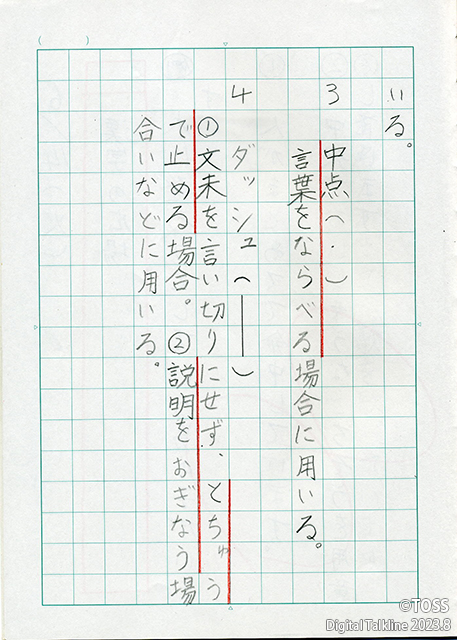 (　　)
いる。
3　中点（・）
言葉をならべる場合に用いる。
4　ダッシュ（―）
①文末を言い切りにせず、とちゅう
で止める場合。②説明をおぎなう場
合いなどに用いる。
©TOSS
Digital Talkline 2023.8